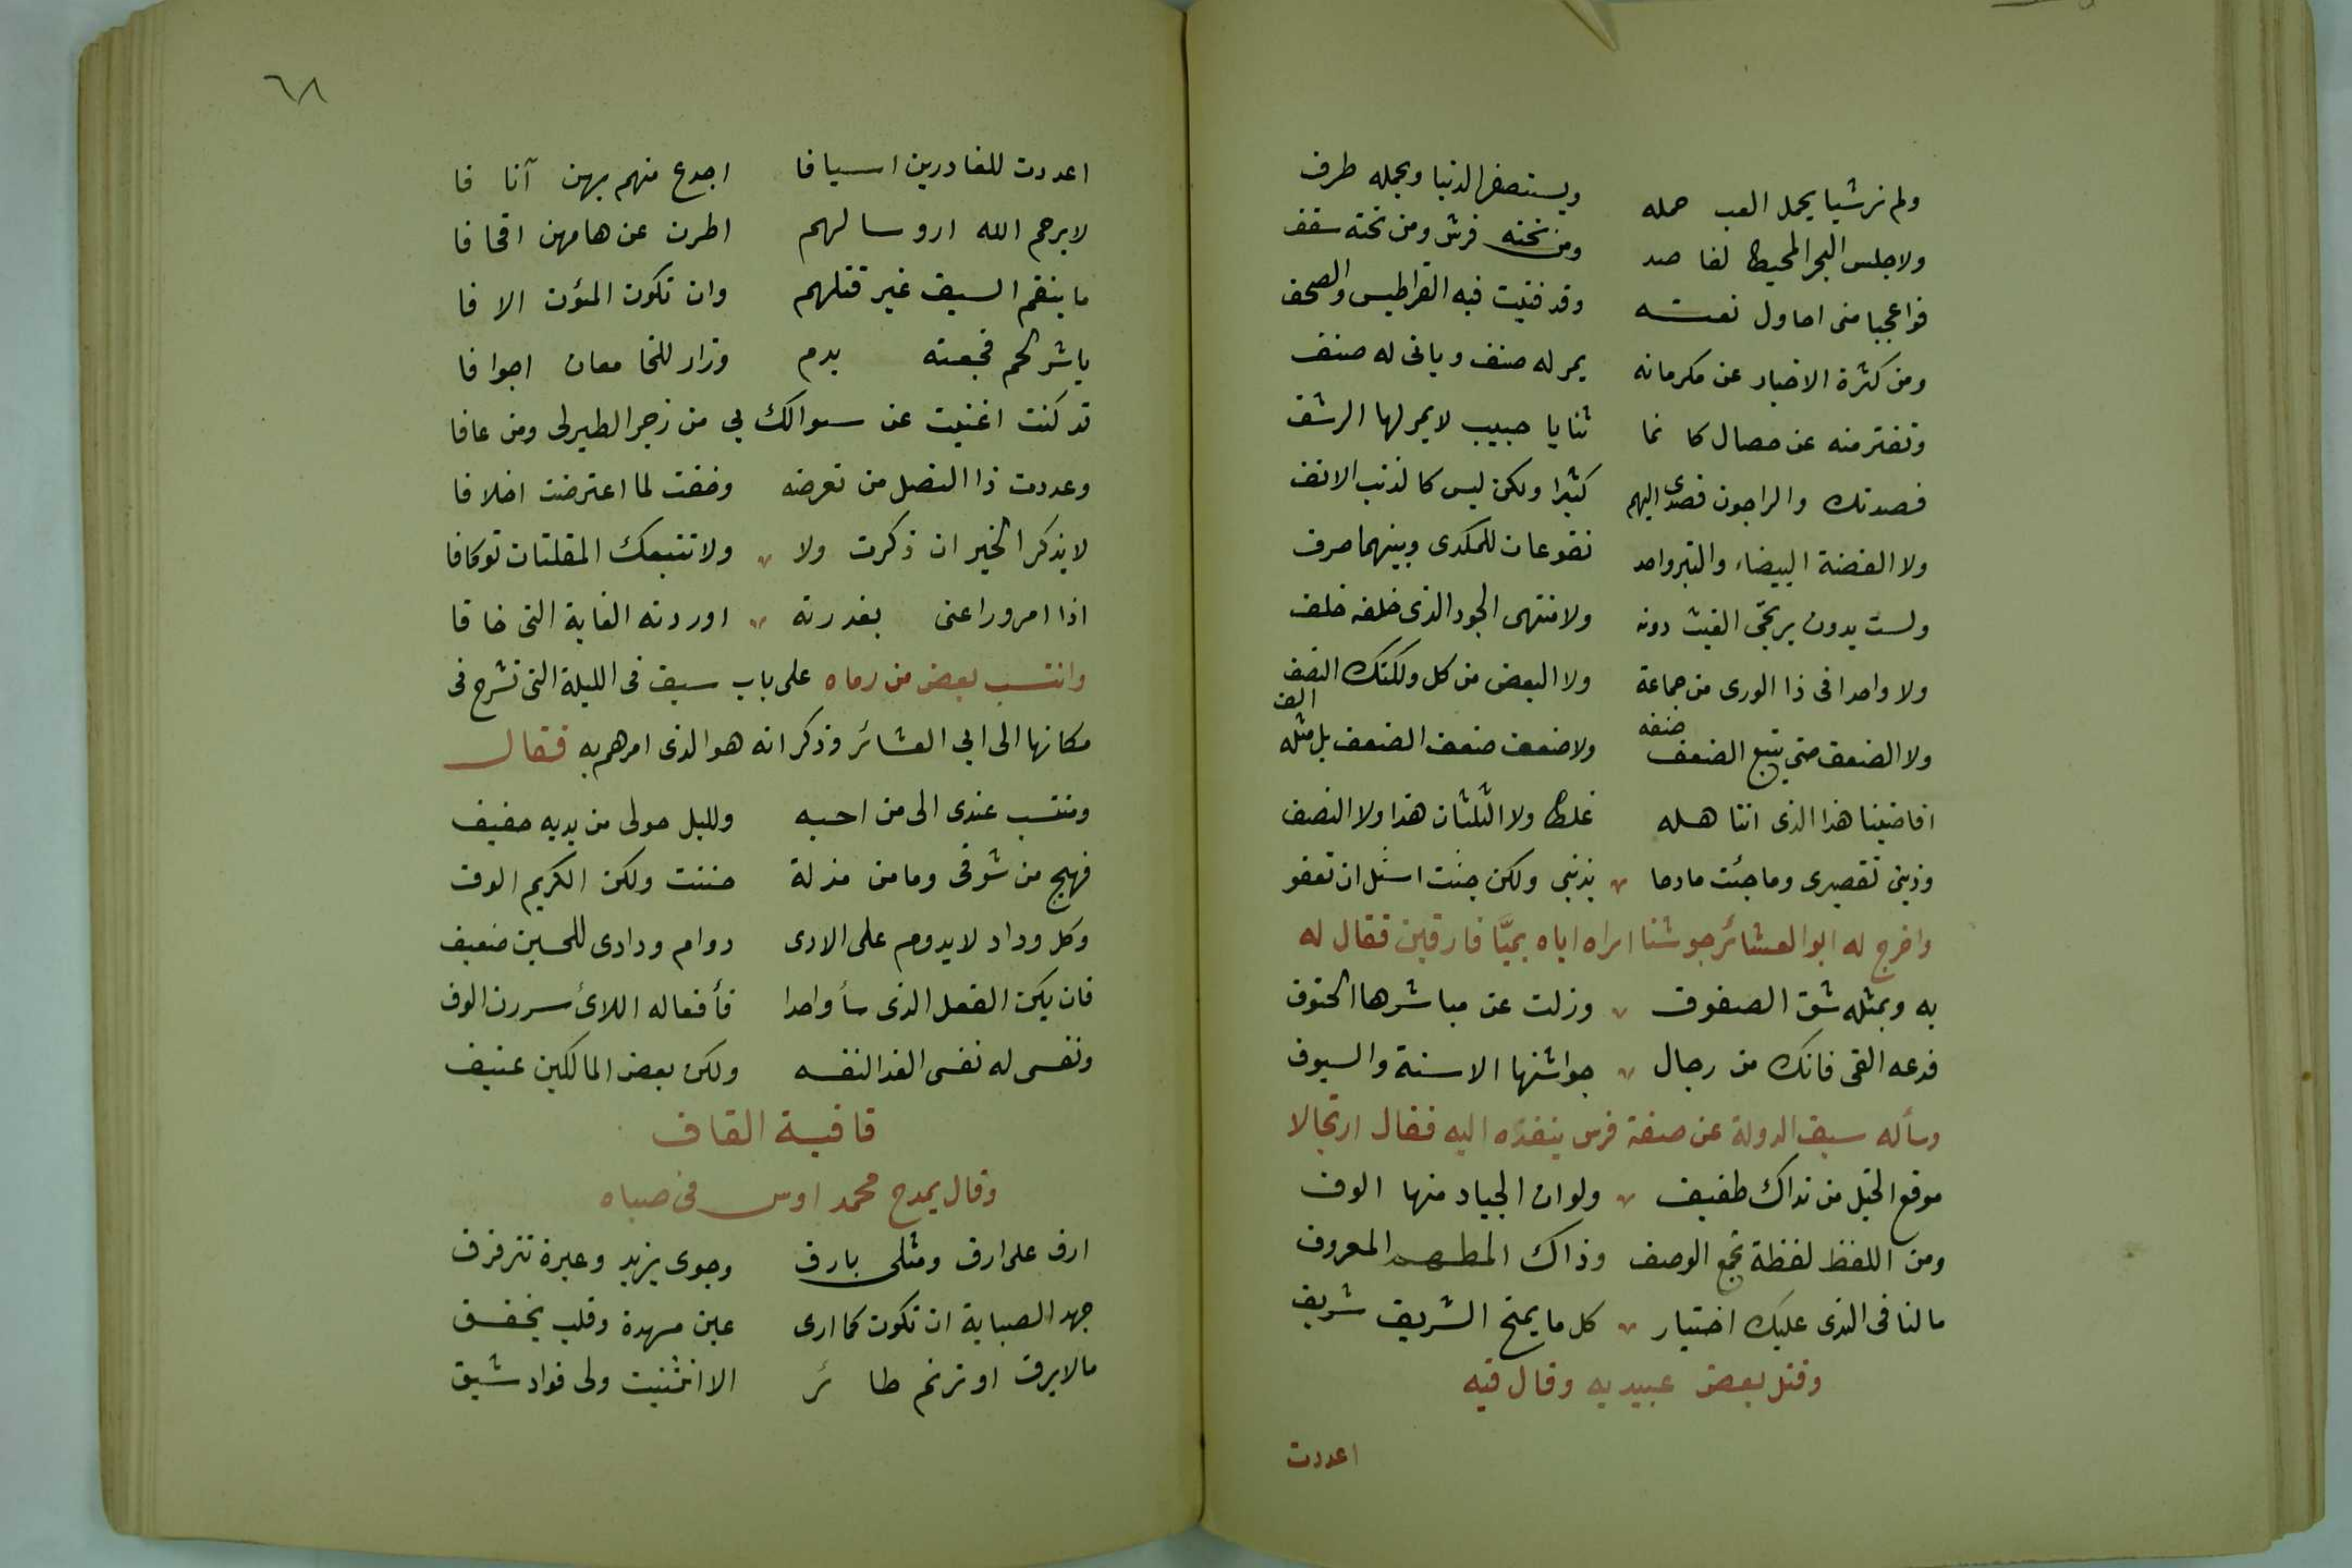 ولم نر شيا يحمل العب حمله ويستصغر الدنيا ويحمله طرف
ولا جلس البحر المحيط لقاصد ومن تحته فرش ومن تحته سقف
فواعجبا منى احاول نعته وقد فنيت فيه القراطيس والصحف
ومن كثرة الاخبار عن مكرماته يمر له صنف وياتى له صنف
وتفتر منه عن خصال كا نما ثنايا حبيب لا يمر لها الرشف
قصدتك والراجون قصدى اليهم كثيرا ولكن ليس كالذنب الانف
ولا الفضة البيضاء والتبر واحد نفوعان للمكدى وبينهما صرف
ولست بدون يرتجّى الغيث دونه ولا منتهى الجود الذى خلفه خلف
ولا واحدا فى ذا الورى من جماعة ولا البعض من كل ولكنك الضعف
ولا الضعف حتى يتبع الضعف ضعفه ولا ضعف ضعف الضعف بل مثله الف
اقاضينا هذا الذى انتا هله غلط ولا الثلثان هذا ولا النصف
وذنبى تقصيرى وما جئت مادحا بذنبى ولكن جئت اسئل ان تعفو
واخرج له ابو العشائر جوشنا اراه اياه بميَّا فارقين فقال له
به وبمثله شق الصفوف وزلت عن مباشرها الحتوف
فدعه القى فانك من رجال جواشنها الاسنة والسيوف
وسأله سيف الدولة عن صفة فرس ينفذه اليه فقال ارتجالا
موقع الخيل من نداك طفيف ولو ان الجياد منها الوف
ومن اللفظ لفظة تجمع الوصف وذاك المطهم المعروف
ما لنا فى الندى عليك اختيار كل ما يمنح الشريف شريف
وقتل بعض عبيديه وقال فيه
اعددت
٦٨
اعددت للغادرين اسيافا اجدع منهم بهن آنا فا
لا يرحم الله اروسا لهم اطرن عن هامهن اقحافا
ما ينقم السيف غير قتلهم وان تكون المئون الا فا
ياشر لحم فجعته بدم وزار للخامعات اجوافا
قد كنت اغنيت عن سوالك بى من زجر الطير لى ومن عافا
وعددت ذا النصل من تعرضه وخفت لما اعترضت اخلافا
لا يذكر الخير ان ذكرت ولا ولا تتبعك المقلتان توكافا
اذا امرور اعنى بغدرته اوردته الغاية التى خافا
وانتسب بعض من رماه على باب سيف فى الليلة التى نشرح فى
مكانها الى ابى العشائر وذكر انه هو الذى امرهم به فقال
ومنتسب عندى الى من احبه ولليل حولى من يديه حفيف
فهيج من شوقى وما من مذلة حننت ولكن الكريم الوف
وكل وداد لا يدوم على الاذى دوام ودادى للحسين ضعيف
فان يكن الفعل الذى سأ واحدا فأفعاله اللائ سررن الوف
ونفسى له نفسى الفدا لنفسه ولكن بعض المالكين عنيف
قافية القاف
وقال يمدح محمد اوس فى صباه
ارق على ارق ومثلى يارق وجوى يزيد وعبرة تترقرق
جهد الصبابة ان تكون كما ارى عين مسهدة وقلب يخفق
مالا برق او ترنم طا ئر الا انثنيت ولى فواد شيق